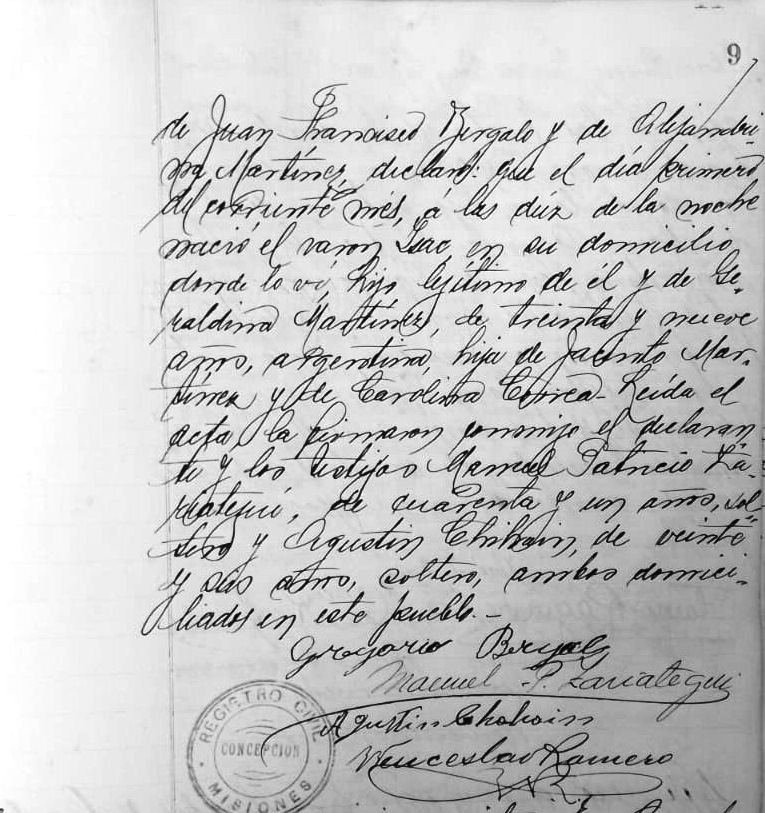 9
de Juan Francisco Vergalo y de Alejandri-
na Martínez, declaró: que el día primero
del corriente més, á las diez de la noche
nació el varon Isac en su domicilio
donde lo vi, hijo legítimo de él y de Ge-
raldina Martínez, de treinta y nueve
años, argentina, hija de Jacinto Mar-
tínez y de Carolina Correa- Leída el
acta la firmaron conmigo el declaran-
te y los testigos Manuel Patricio Za-
riategui, de cuarenta y un años, sol-
tero y Agustin Chihoin, de veinte
y seis años, soltero, ambos domici-
liados en este pueblo.-
Gregorio
Manuel P. Zariategui
Agustin Chohoin
Wenceslao Romero
WR
REGISTRO CIVIL
CONCEPCION
MISIONES